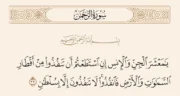 سُورَةُ الرَّحْمَن
يَٰمَعْشَرَ الْجِنِّ وَالْإِنسِ إِنِ اسْتَطَعْتُمْ أَن تَنفُذُوا مِنْ أَقْطَارِ
السَّمَٰوَٰتِ وَالْأَرْضِ فَانفُذُوا لَا تَنفُذُونَ إِلَّا بِسُلْطَٰنٍ ٣٣